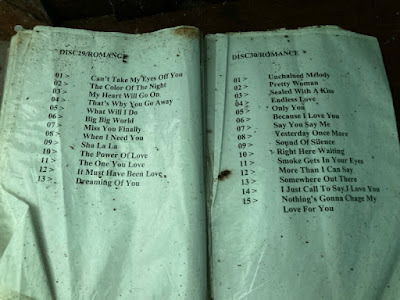 DISC29/ROMANCE
01 > Can't Take My Eyes Off You
02 > The Color Of The Night
03 > My Heart Will Go On
04 > That's Why You Go Away
05 > What Will I Do
06 > Big Big World
07 > Miss You Finally
08 > When I Need You
09 > Sha La La
10 > The Power Of Love
11 > The One You Love
12 > It Must Have Been Love
13 > Dreaming Of You
DISC30/ROMANCE
01 > Unchained Melody
02 > Pretty Woman
03 > Sealed With A Kiss
04 > Endless Love
05 > Only You
06 > Because I Love You
07 > Say You Say Me
08 > Yesterday Once More
09 > Sound Of Silence
10 > Right Here Waiting
11 > Smoke Gets In Your Eyes
12 > More Than I Can Say
13 > Somewhere Out There
14 > I Just Call To Say I Love You
15 > Nothing's Gonna Chage My
Love For You